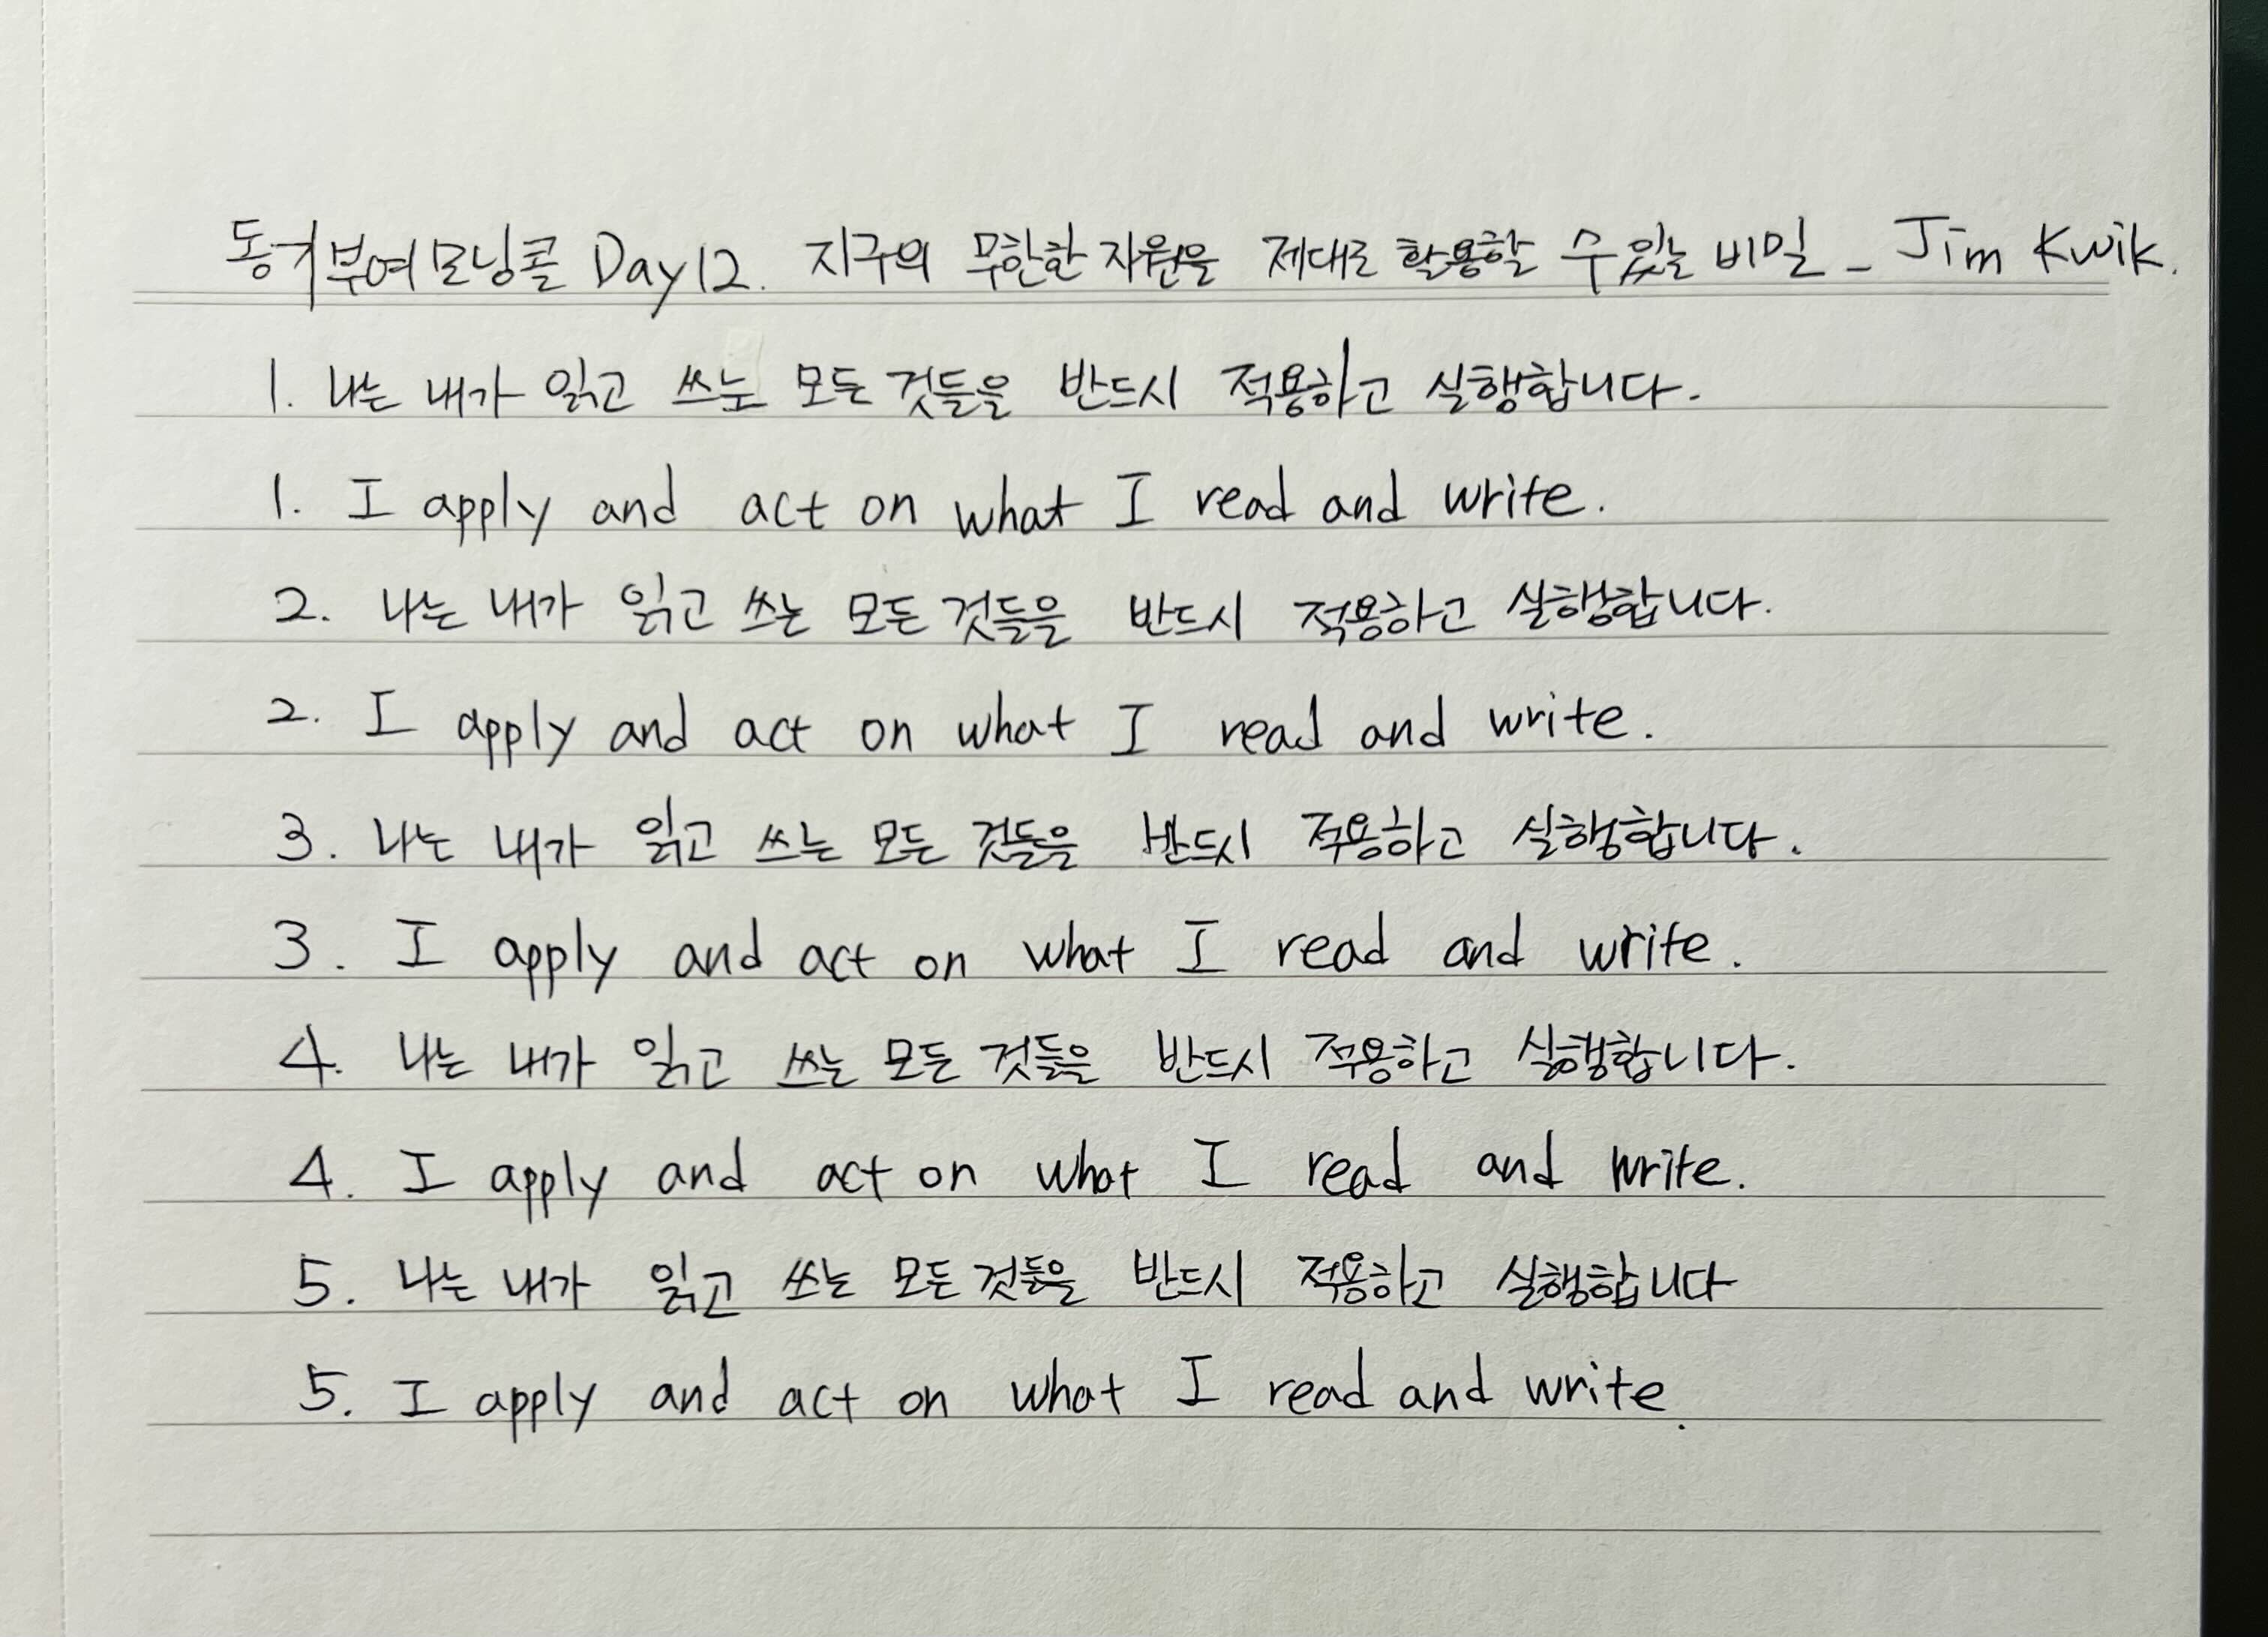 동기부여모닝콜 Day12. 지구의 무한한 자원을 제대로 활용할 수 있는 비밀 - Jim Kwik.
1. 나는 내가 읽고 쓰는 모든 것들을 반드시 적용하고 실행합니다.
1. I apply and act on what I read and write.
2. 나는 내가 읽고 쓰는 모든 것들을 반드시 적용하고 실행합니다.
2. I apply and act on what I read and write.
3. 나는 내가 읽고 쓰는 모든 것들을 반드시 적용하고 실행합니다.
3. I apply and act on what I read and write.
4. 나는 내가 읽고 쓰는 모든 것들을 반드시 적용하고 실행합니다.
4. I apply and act on what I read and write.
5. 나는 내가 읽고 쓰는 모든 것들을 반드시 적용하고 실행합니다
5. I apply and act on what I read and write.